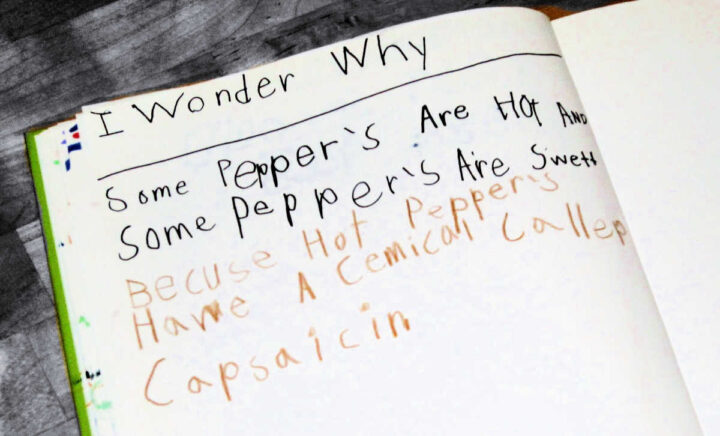 I Wonder Why
Some Pepper's Are HOt AND
Some Pepper's Are Swett
Becuse Hot Pepper's
Have A Cemical Callep
Capsaicin